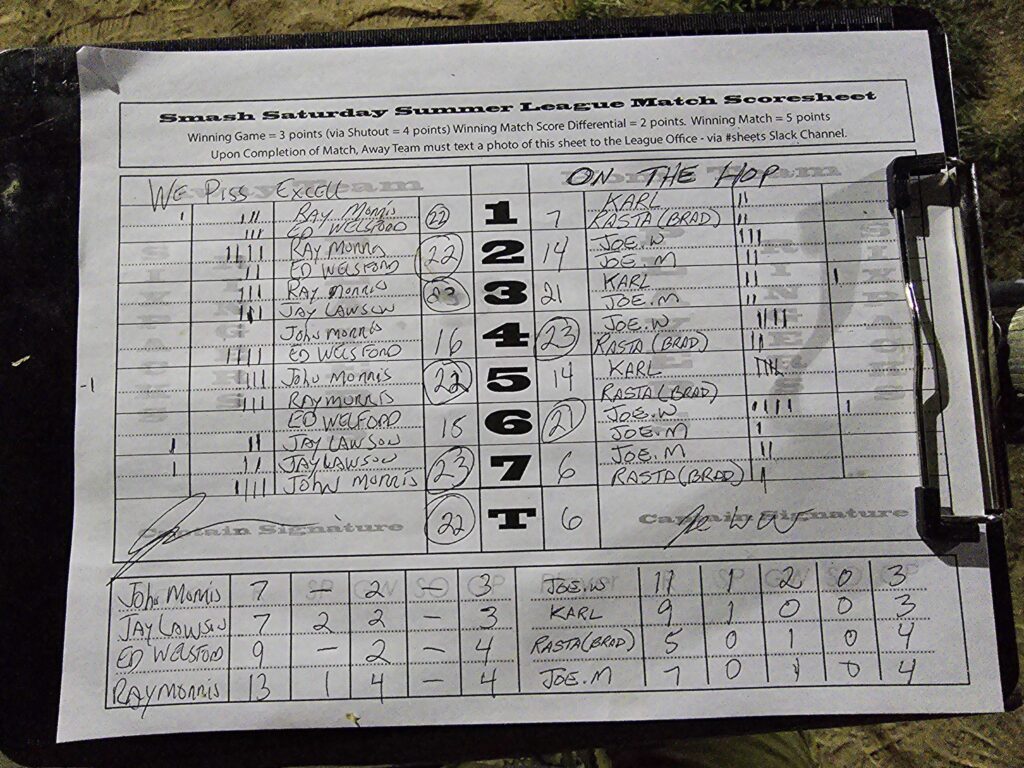 Smash Saturday Summer League Match Scoresheet
Winning Game = 3 points (via Shutout = 4 points) Winning Match Score Differential = 2 points. Winning Match = 5 points
Upon Completion of Match, Away Team must text a photo of this sheet to the League Office - via #sheets Slack Channel.
WE PISS EXCELL ON THE HOP
RAY MORRIS 22 1 7 KARL
ED WELSFORD RASTA (BRAD)
RAY MORRIS 22 2 14 JOE.W
ED WELSFORD JOE.M
RAY MORRIS 23 3 21 KARL
JAY LAWSON JOE.M
JOHN MORRIS 16 4 23 JOE.W
ED WELSFORD RASTA (BRAD)
-1 JOHN MORRIS 22 5 14 KARL
RAY MORRIS RASTA (BRAD)
ED WELFORD 15 6 21 JOE.W
JAY LAWSON JOE.M
JAY LAWSON 23 7 6 JOE.M
JOHN MORRIS RASTA (BRAD)
Captain Signature 22 T 6 Captain Signature
JOHN MORRIS 7 - 2 - 3 JOE.W 11 1 2 0 3
JAY LAWSON 7 2 2 - 3 KARL 9 1 0 0 3
ED WELSFORD 9 - 2 - 4 RASTA (BRAD) 5 0 1 0 4
RAY MORRIS 13 1 4 - 4 JOE.M 7 0 1 0 4